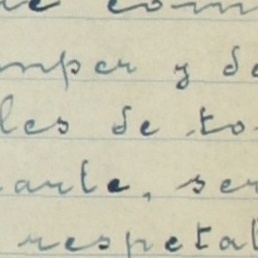 com
mper y de
les de to
arte, ser
respetal